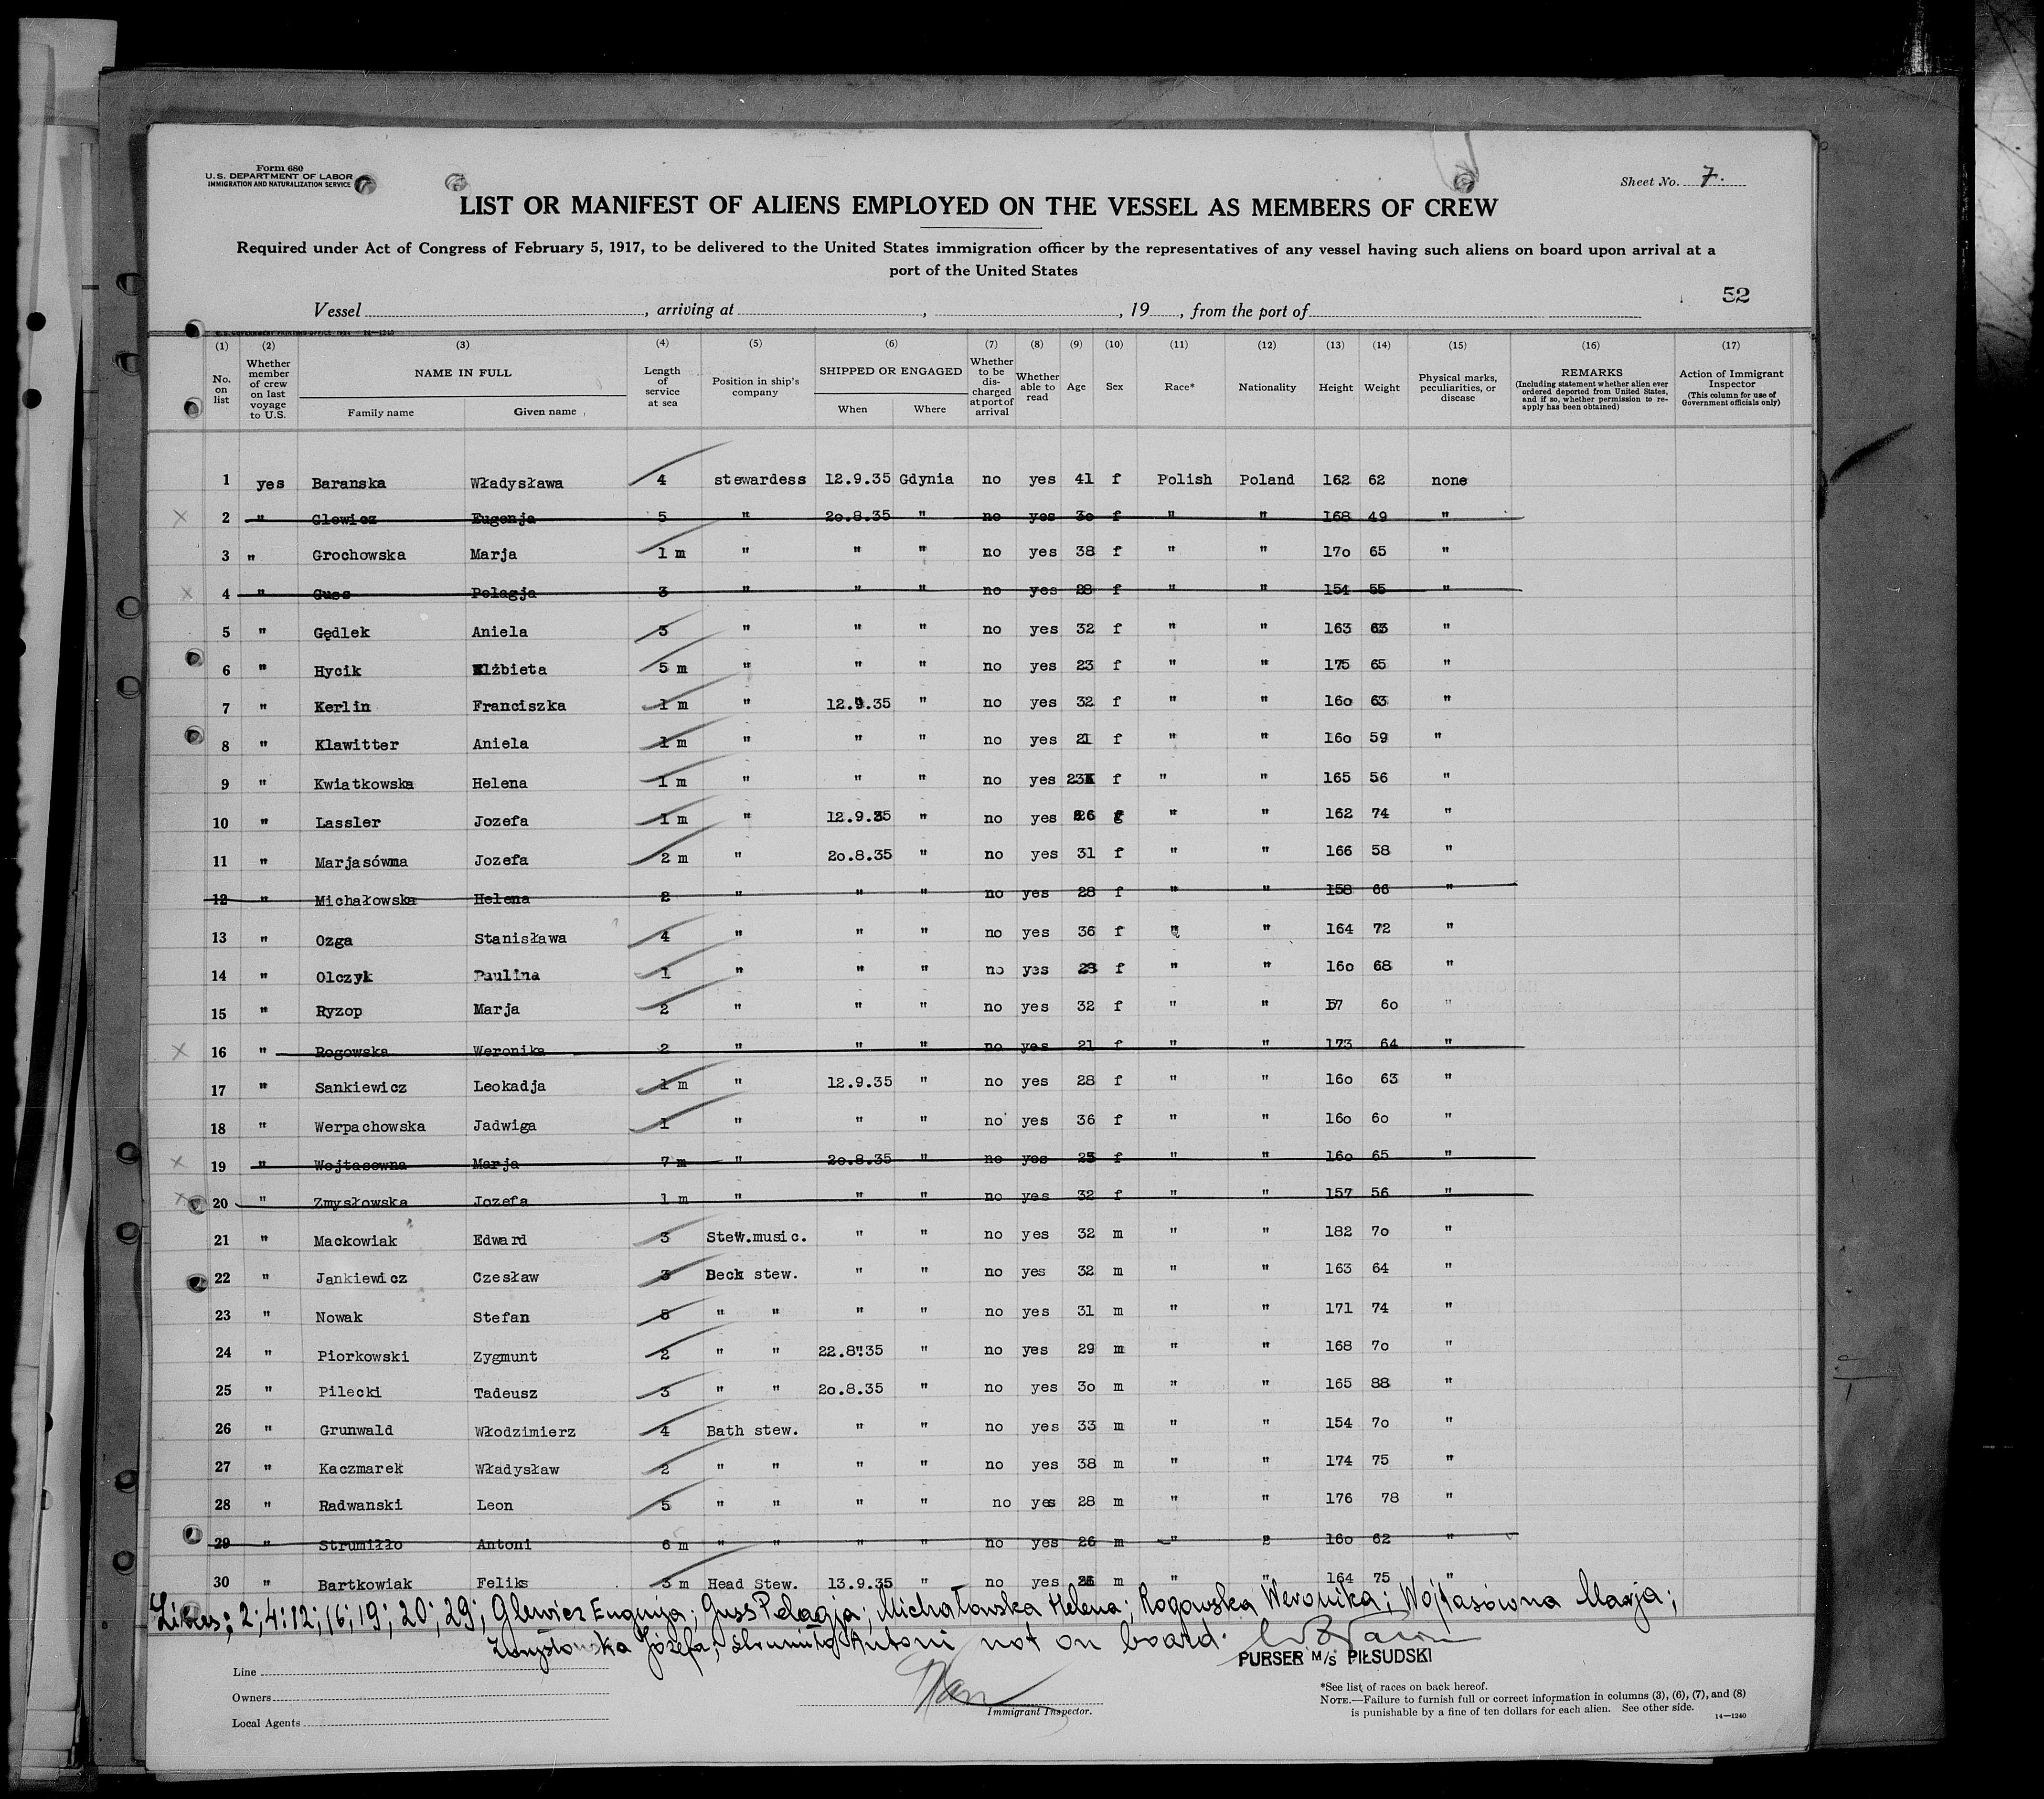 Form 680
U.S. DEPARTMENT OF LABOR
IMMIGRATION AND NATURALIZATION SERVICE
Sheet No. 7.
LIST OR MANIFEST OF ALIENS EMPLOYED ON THE VESSEL AS MEMBERS OF CREW
Required under Act of Congress of February 5, 1917, to be delivered to the United States immigration officer by the representatives of any vessel having such aliens on board upon arrival at a
port of the United States
52
Vessel , arriving at , , 19 , from the port of
(1) (2) (3) (4) (5) (6) (7) (8) (9) (10) (11) (12) (13) (14) (15) (16) (17)
No. on list Whether member of crew on last voyage to U.S. NAME IN FULL Family name Given name Length of service at sea Position in ship's company SHIPPED OR ENGAGED When Where Whether to be discharged at port of arrival Whether able to read Age Sex Race* Nationality Height Weight Physical marks, peculiarities, or disease REMARKS (Including statement whether alien ever ordered deported from United States, and if so, whether permission to reapply has been obtained) Action of Immigrant Inspector (This column for use of Government officials only)
1 yes Baranska Władysława 4 stewardess 12.9.35 Gdynia no yes 41 f Polish Poland 162 62 none
2 " Glewicz Eugenja 5 " 20.8.35 " no yes 30 f " " 168 49 "
3 " Grochowska Marja 1 m " " " no yes 38 f " " 170 65 "
4 " Guss Pelagja 3 " " " no yes 28 f " " 154 55 "
5 " Gędlek Aniela 3 " " " no yes 32 f " " 163 63 "
6 " Hycik Elżbieta 5 m " " " no yes 23 f " " 175 65 "
7 " Kerlin Franciszka 1 m " 12.9.35 " no yes 32 f " " 160 63 "
8 " Klawitter Aniela 1 m " " " no yes 21 f " " 160 59 "
9 " Kwiatkowska Helena 1 m " " " no yes 23 f " " 165 56 "
10 " Lassler Jozefa 1 m " 12.9.35 " no yes 26 f " " 162 74 "
11 " Marjasówna Jozefa 2 m " 20.8.35 " no yes 31 f " " 166 58 "
12 " Michałowska Helena 2 " " " no yes 28 f " " 158 66 "
13 " Ozga Stanisława 4 " " " no yes 36 f " " 164 72 "
14 " Olczyk Paulina 1 " " " no yes f " " 160 68 "
15 " Ryzop Marja 2 " " " no yes 32 f " " 60 "
16 " Rogowska Weronika 2 " " " no yes 21 f " " 173 64 "
17 " Sankiewicz Leokadja 1 m " 12.9.35 " no yes 28 f " " 160 63 "
18 " Werpachowska Jadwiga 1 " " " no yes 36 f " " 160 60 "
19 " Wojtasowna Marja 7 m " 20.8.35 " no yes 25 f " " 160 65 "
20 " Zmysłowska Jozefa 1 m " " " no yes 32 f " " 157 56 "
21 " Mackowiak Edward 3 Stew.music. " " no yes 32 m " " 182 70 "
22 " Jankiewicz Czesław 3 Deck stew. " " no yes 32 m " " 163 64 "
23 " Nowak Stefan " " " " no yes 31 m " " 171 74 "
24 " Piorkowski Zygmunt 2 " " 22.8.35 " no yes 29 m " " 168 70 "
25 " Pilecki Tadeusz 3 " " 20.8.35 " no yes 30 m " " 165 88 "
26 " Grunwald Włodzimierz 4 Bath stew. " " no yes 33 m " " 154 70 "
27 " Kaczmarek Władysław 2 " " " " no yes 38 m " " 174 75 "
28 " Radwanski Leon 5 " " " " no yes 28 m " " 176 78 "
29 " Strumiłło Antoni 6 m " " " " no yes 26 m " 2 160 62 "
30 " Bartkowiak Feliks 3 m Head Stew. 13.9.35 " no yes m " " 164 75 "
Lines; 2; 4; 12; 16; 19; 20; 29; Glewicz Eugenija; Guss Pelagja; Michałowska Helena; Rogowska Weronika; Wojtasówna Marja;
Zmysłowska Józefa; Strumiłło Antoni not on board.
PURSER M/S PIŁSUDSKI
Line
Owners
Local Agents
Immigrant Inspector.
*See list of races on back hereof.
NOTE.—Failure to furnish full or correct information in columns (3), (6), (7), and (8)
is punishable by a fine of ten dollars for each alien. See other side.
14—1240